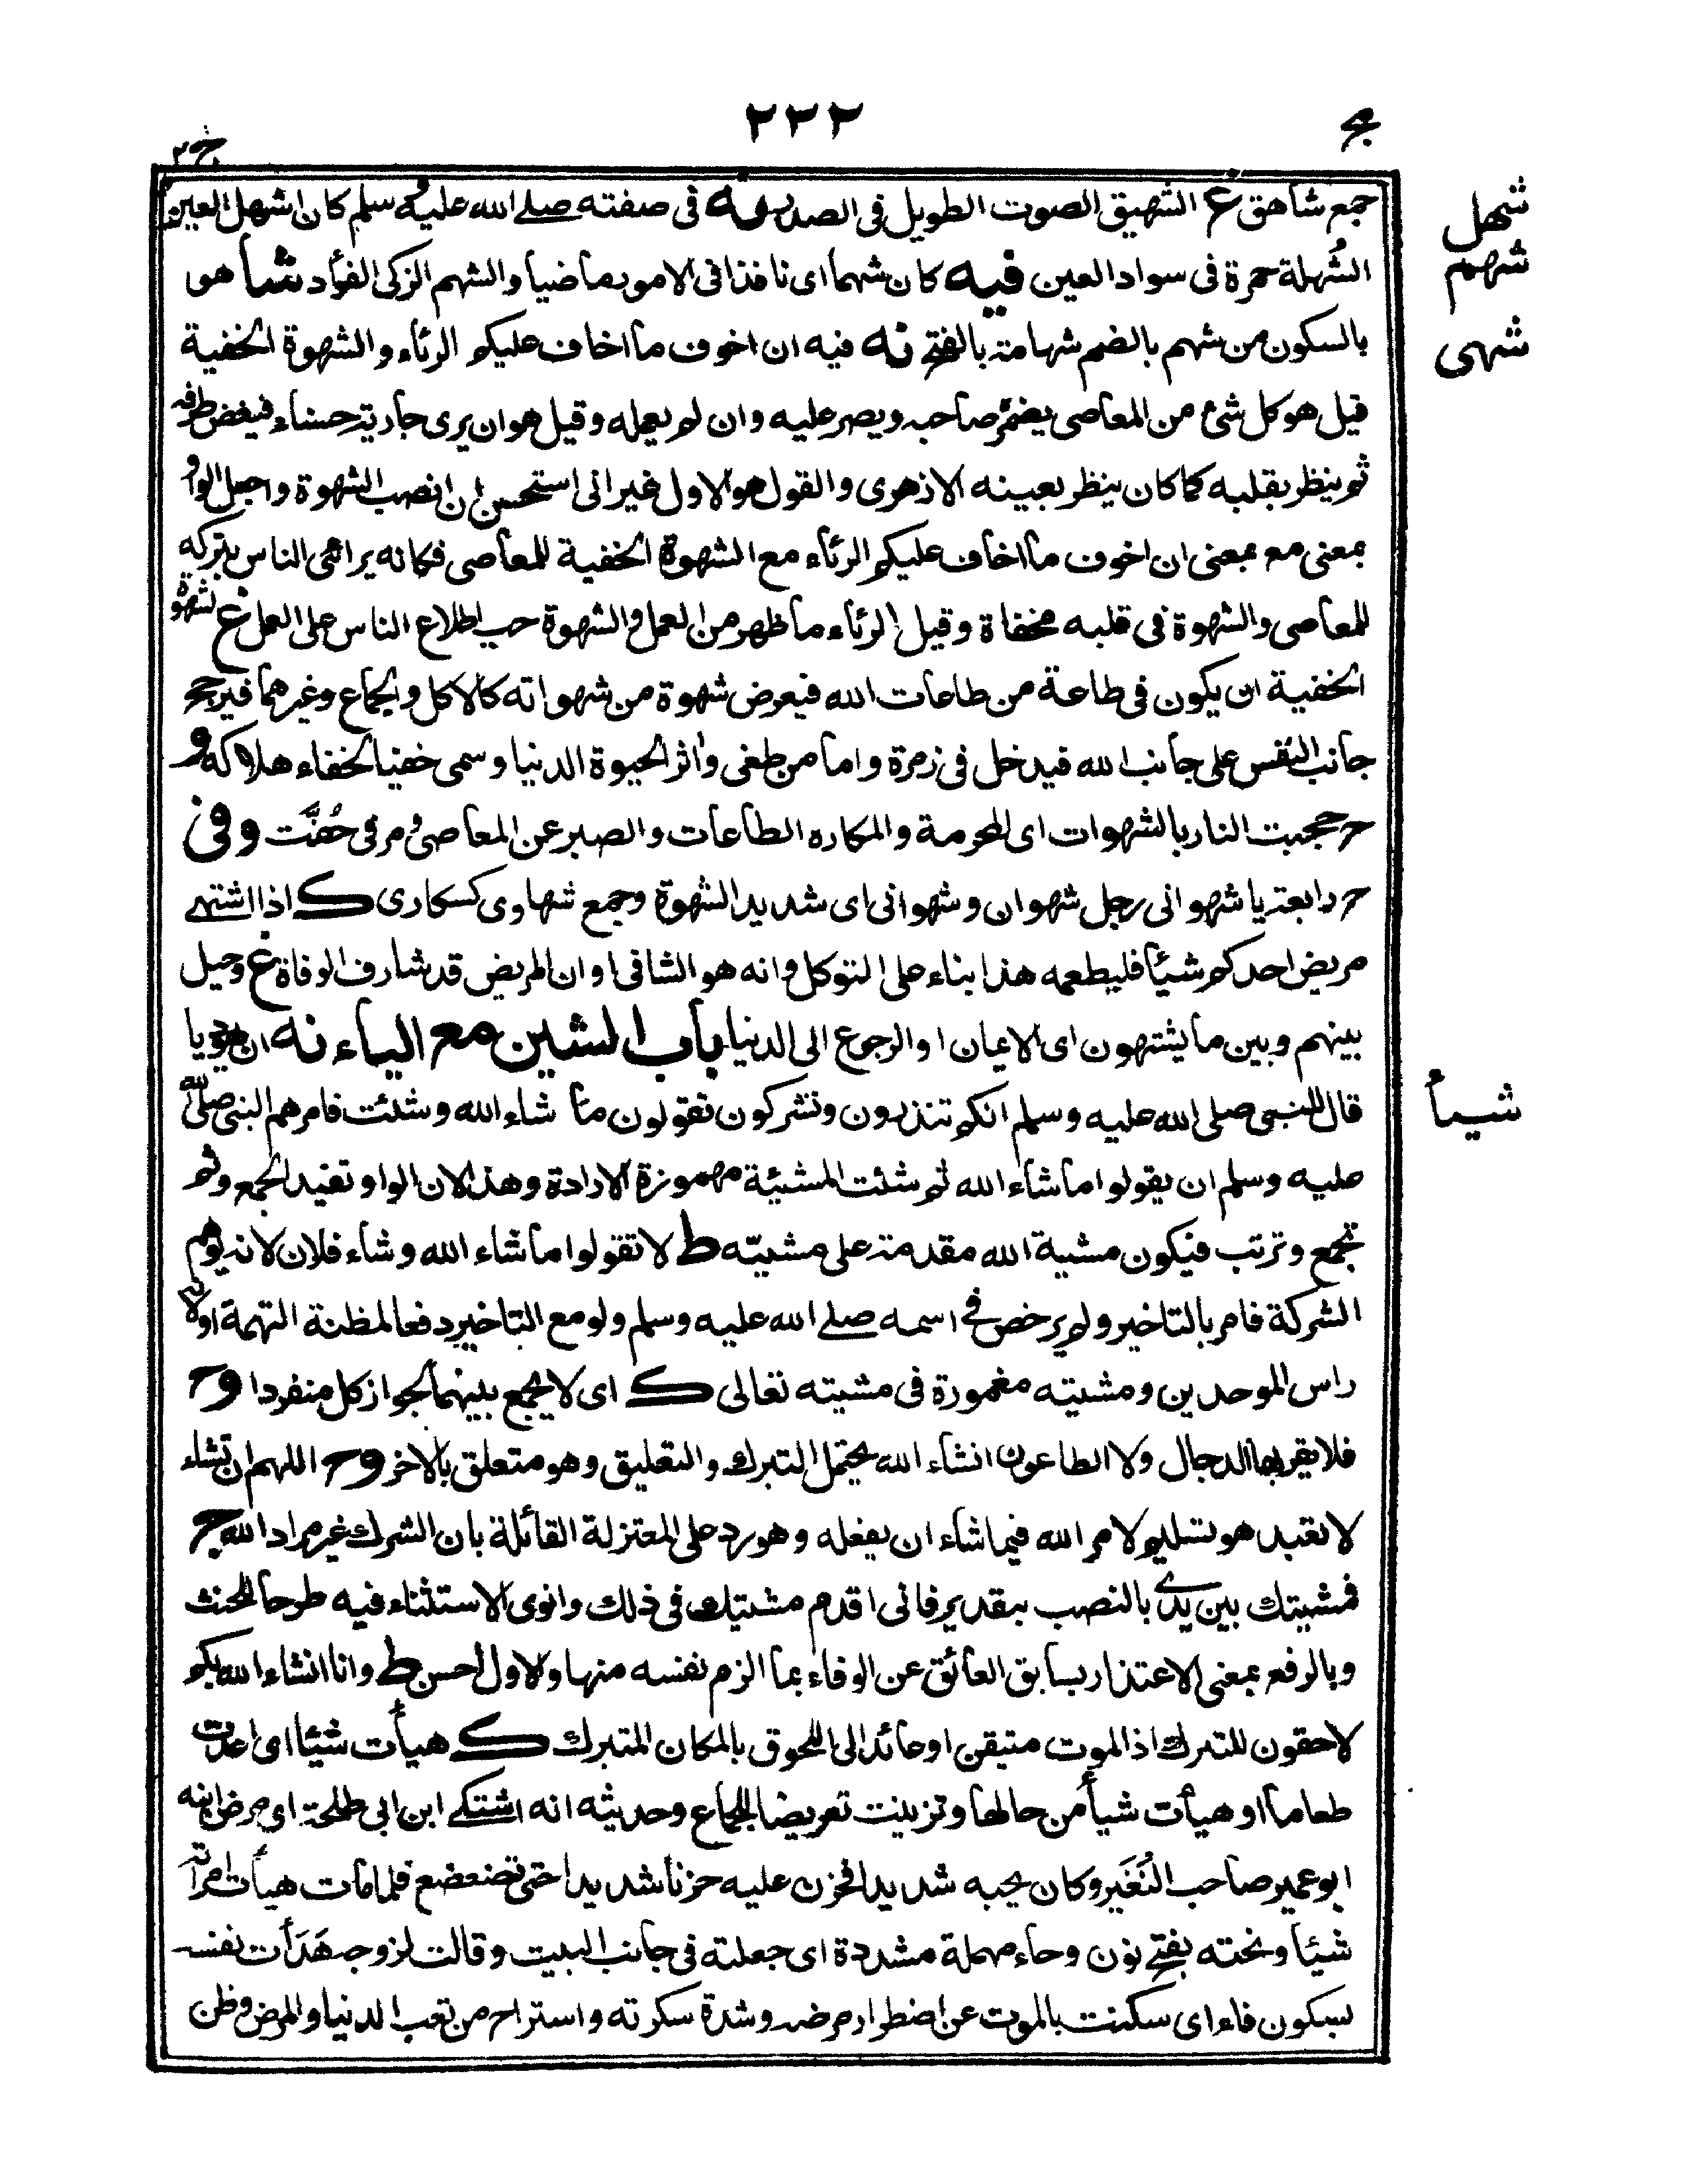 ٢٢٢
جمع شاهق غ الشهيق الصوت الطويل فى الصدر نه فى صفته صلى الله عليه وسلم كان اشهل العين
شهل
الشُهلة حمرة فى سواد العين فيه كان شهما اى نافذا فى الامور ماضيا والشهم الزكى الفؤاد شا هو
شهم
بالسكون من شهم بالضم شهامة بالفتح نه فيه ان اخوف ما اخاف عليكم الرئاء والشهوة الخفية
شهى
قيل هو كل شئ من المعاصى يضمره صاحبه ويصر عليه وان لم يعمله وقيل هو ان يرى جارية حسناء فيغض طرفه
ثم ينظر بقلبه كما كان ينظر بعينه الازهرى والقول هو الاول غير انى استحسن ان انصب الشهوة واجعل الواو
بمعنى مع بمعنى ان اخوف ما اخاف عليكم الرئاء مع الشهوة الخفية للمعاصى فكانه يرائى الناس بتركه
للمعاصى والشهوة فى قلبه مخفاة وقيل الرئاء ما ظهر من العمل والشهوة حب اطلاع الناس على العمل غ لشهوة
الخفية ان يكون فى طاعة من طاعات الله فيعرض شهوة من شهواته كالاكل والجماع وغيرهما فيرجح
جانب النفس على جانب الله فيدخل فى زمرة واما من طغى واثر الحيوة الدنيا وسمى خفيا لخفاء هلاكه و
ح حجبت النار بالشهوات اى المحرمة والمكاره الطاعات والصبر عن المعاصى ومر فى حُفَّت وفى
ح رابعة يا شهوانى رجل شهوان وشهوانى اى شديد الشهوة وجمع شهاوى كسكارى ك اذا اشتهى
مريض احدكم شيئا فليطعمه هذا بناء على التوكل وانه هو الشافى او ان المريض قد شارف الوفاة غ وحيل
بينهم وبين ما يشتهون اى الايمان او الرجوع الى الدنيا باب الشين مع الياء نه ان يهوديا
قال للنبى صلى الله عليه وسلم انكم تنذرون وتشركون تقولون ما شاء الله وشئت فامرهم النبى صلى الله
شيأ
عليه وسلم ان يقولوا ما شاء الله ثم شئت المشيئة مهموزة الارادة وهذا لان الواو تفيد الجمع وثم
تجمع وترتب فيكون مشية الله مقدمة على مشيته ط لا تقولوا ما شاء الله وشاء فلان لانه يوهم
الشركة فامر بالتاخير ولم يرخص فى اسمه صلى الله عليه وسلم ولو مع التاخير دفعا لمظنة التهمة او لانه
راس الموحدين ومشيته مغمورة فى مشيته تعالى ك اى لا يجمع بينهما لجواز كل منفردا وح
فلا يقربها الدجال ولا الطاعون انشاء الله يحتمل التبرك والتعليق وهو متعلق بالاخر وح اللهم ان تشاء
لا تعبد هو تسليم لامر الله فيما شاء ان يفعله وهو رد على المعتزلة القائلة بان الشرك غير مراد الله ج
فمشيتك بين يدى بالنصب بتقدير فانى اقدم مشيتك فى ذلك وانوى الاستثناء فيه طرحا للحنث
وبالرفع بمعنى الاعتذار بسابق العائق عن الوفاء بما الزم نفسه منها والاول احسن ط وانا انشاء الله بكم
لاحقون للتبرك اذ الموت متيقن او عائد الى اللحوق بالمكان المتبرك ك هيأت شيئا اى اعدت
طعاما او هيأت شيأ من حالها وتزينت تعريضا للجماع وحديثه انه اشتكى ابن ابى طلحة اى مرض ابنه
ابو عمير صاحب النُغَير وكان يحبه شديدا فحزن عليه حزنا شديدا حتى تضعضع فلما مات هيأت امرأته
شيئا ونحته بفتح نون وحاء مهملة مشددة اى جعلته فى جانب البيت وقالت لزوجه هَدَأت نفسه
بسكون فاء اى سكنت بالموت عن اضطرار مرضه وشدة سكرته واستراح من تعب الدنيا والمرض وظن